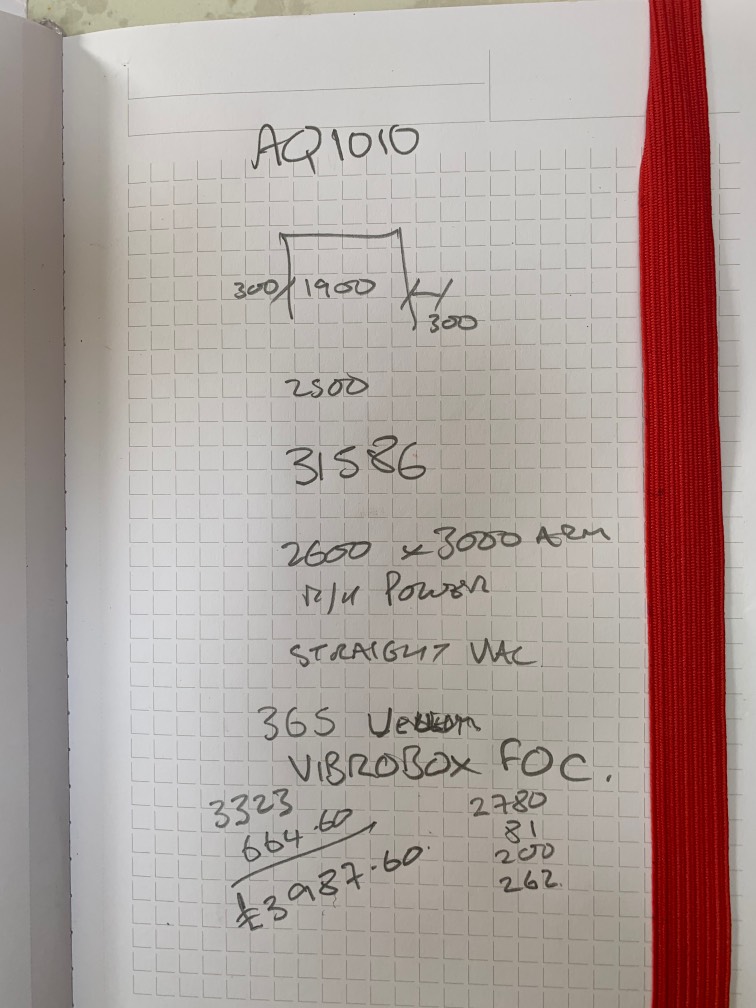 AQ1010
300 1900
300
2500
31586
2600 x 3000 ARM
R/H POWER
STRAIGHT VAC
365
VIBROBOX FOC.
3323
664.60
£3987.60
2780
81
200
262